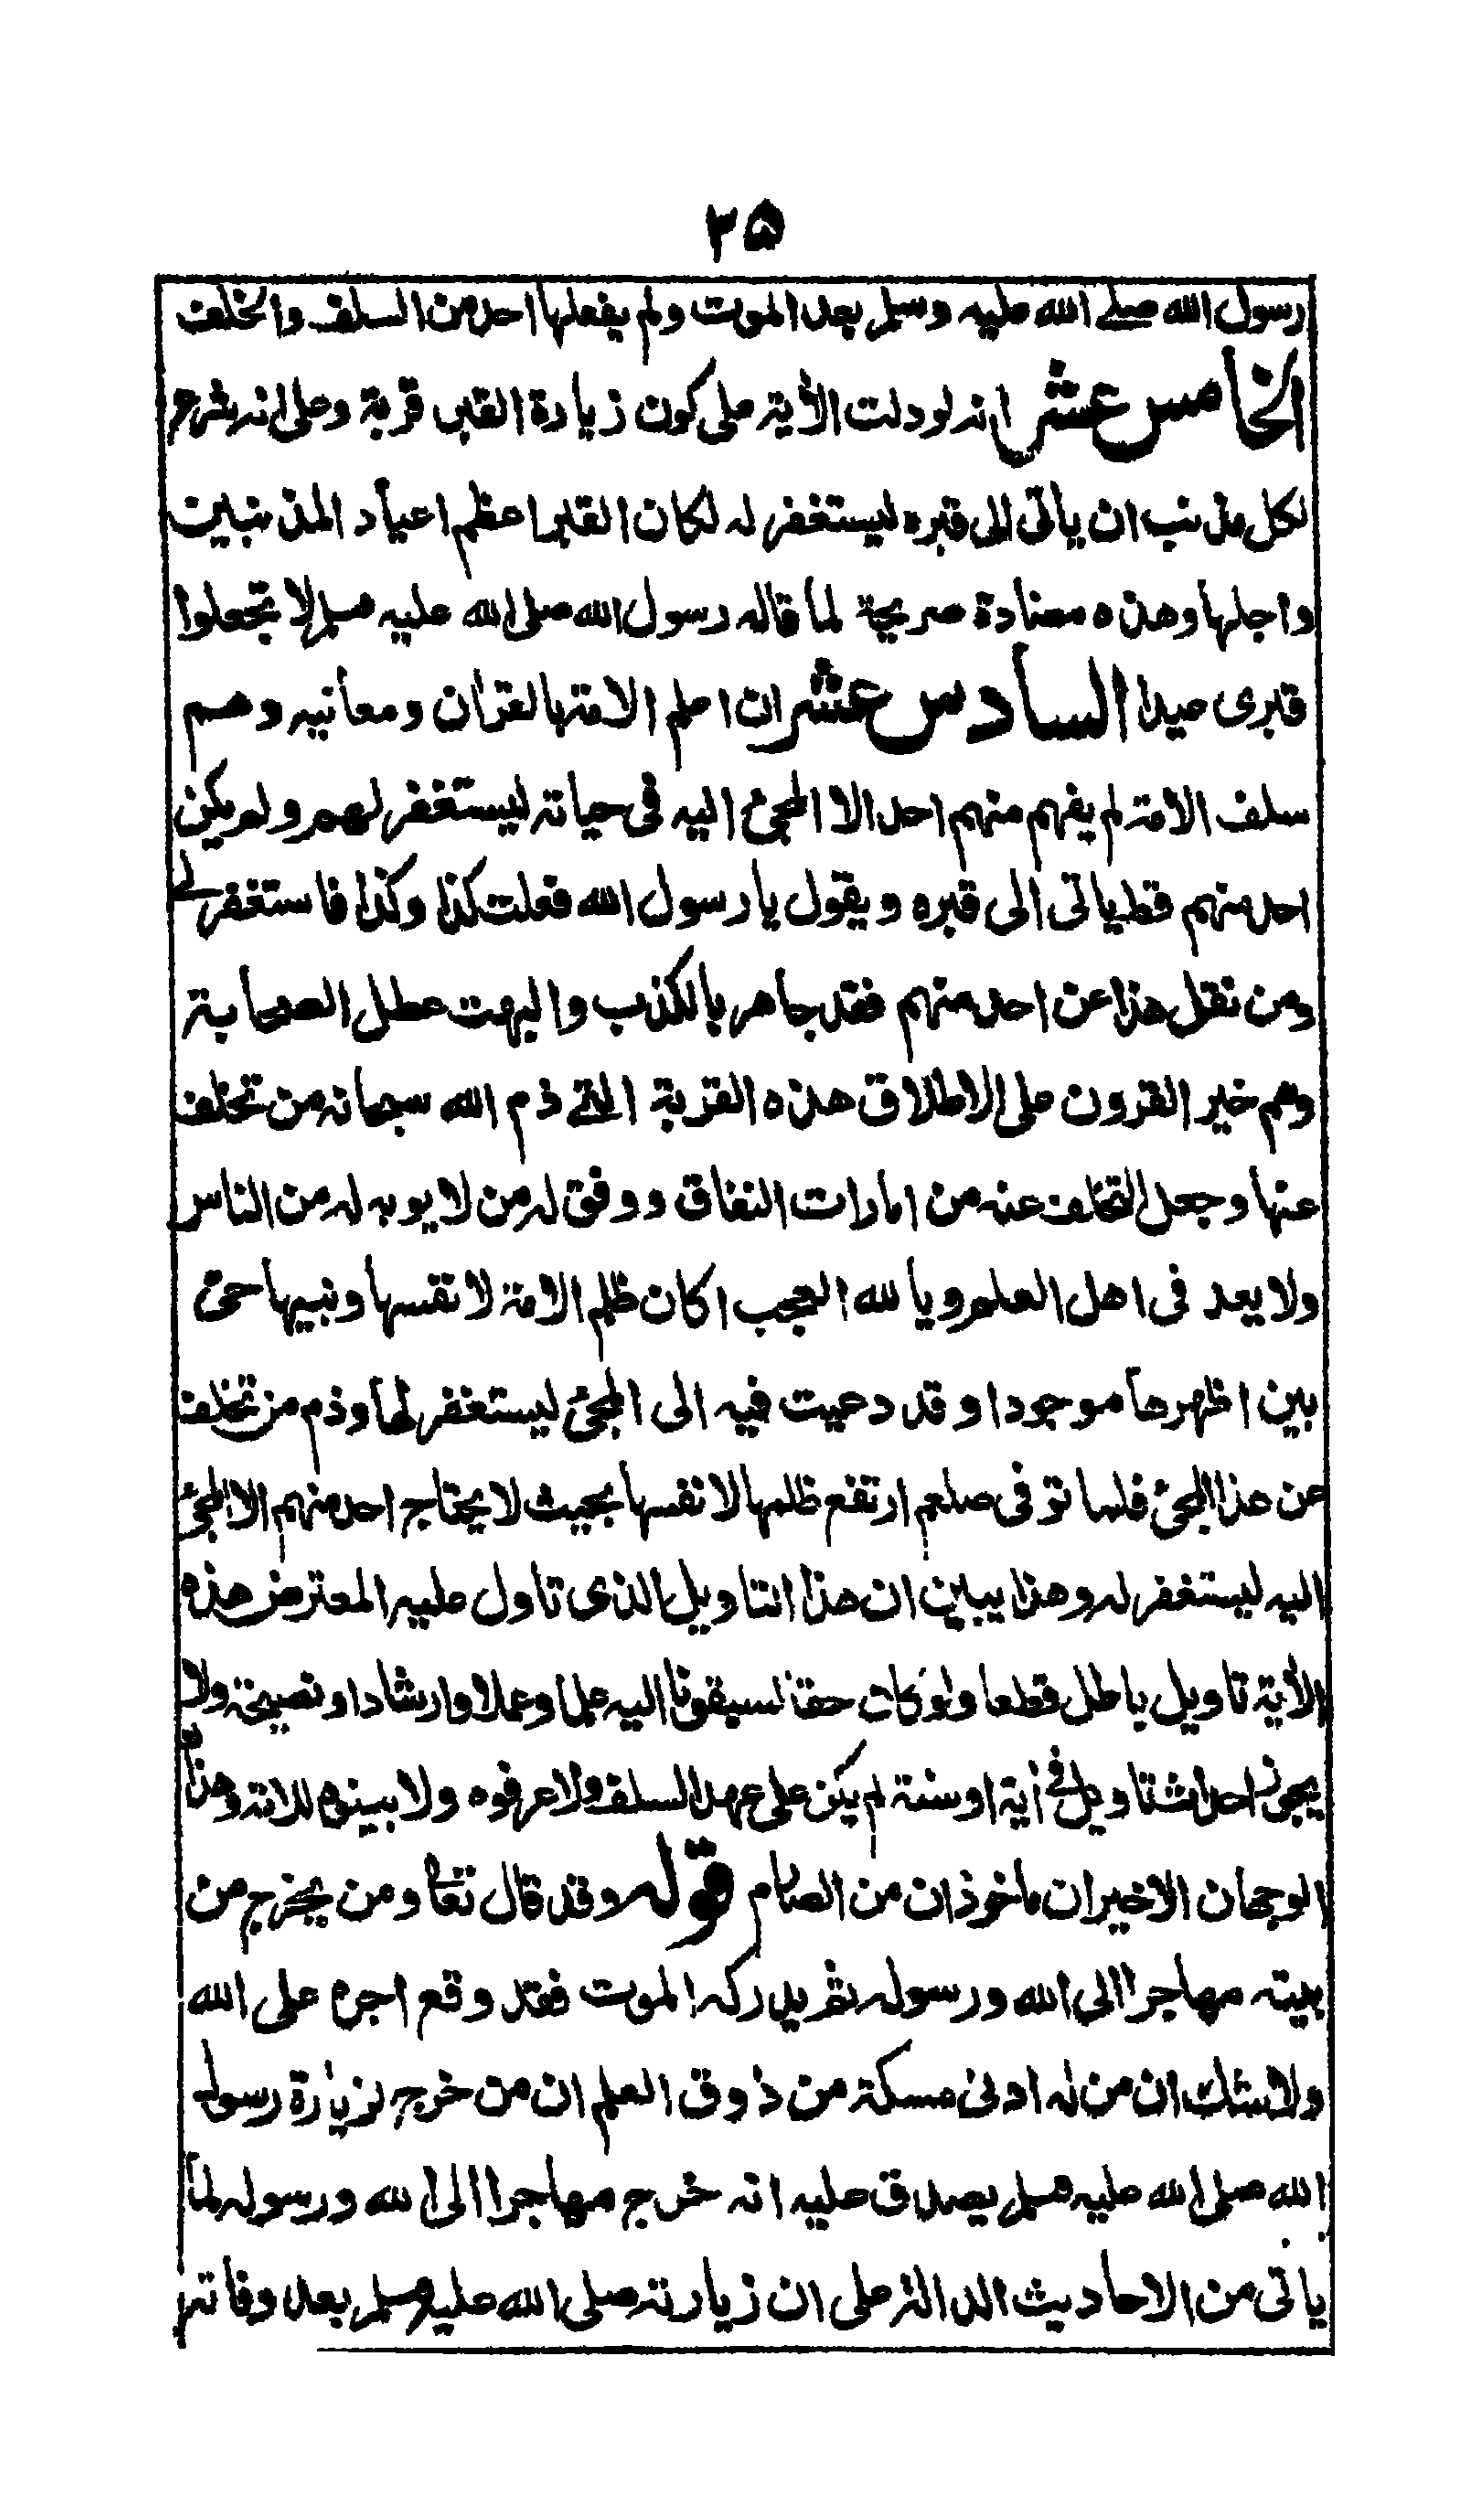 ٢٥
رسول الله صلے الله عليه وسلم بعد الموت ولم يفعلها احد من السلف والخلف
الخامس عشر انه لو دلت الأية على كون زيادة القبر قربة وعلى انه شرع
لكل مذنب ان ياتى الى قبره ليستغفر له لكان القبر اعظم اعياد المذنبين
واجلها وهذه مضادة صريحة لما قاله رسول الله صلى الله عليه وسلم لا تجعلوا
قبرى عيدا السادس عشر ان اعلم الامة بالقرأن ومعانيه وهم
سلف الامة لم يفهم منهم احد الا المجئ اليه فى حياته ليستغفر لهم ولم يكن
احد منهم قط ياتى الى قبره ويقول يا رسول الله فعلت كذا وكذا فاستغفر لے
ومن نقل هذا عن احد منهم فقد جاهر بالكذب والبهت عطل الصحابة
وهم خير القرون على الاطلاق هذه القربة التے ذم الله سبحانه من تخلف
عنها وجعل التخلف عنه من امارات النفاق ووفق له من لا يوبه له من الناس
ولا يعد فى اهل العلم ويا لله العجب اكان ظلم الامة لانفسها ونبيها حى
بين اظهرها موجودا وقد دعيت فيه الى المجئ ليستغفر لها وذم من تخلف
عن هذا المجئ فلما توفى صلعم ارتفع ظلمها لانفسها بحيث لا يحتاج احد منهم الا المجئ
اليه ليستغفر له وهذا يبين ان هذا التاويل الذى تاول عليه المعترض هذه
الأية تاويل باطل قطعا ولو كان حقا لسبقونا اليه علما وعملا وارشادا ونصيحة ولا
يجوز احداث تاويل فى أية او سنة لم يكن على عهد السلف ولا عرفوه ولا بينوه للامة وهذا
الوجهان الاخيران ماخوذان من الصارم قوله وقد قال تعا ومن يخرج من
بيته مهاجرا الى الله ورسوله ثم يدركه الموت فقد وقع اجره على الله
ولا شك ان من له ادنى مسكة من ذوق العلم ان من خرج لزيارة رسول
الله صلى الله عليه وسلم يصدق عليه انه خرج مهاجرا الى الله ورسوله لما
ياتى من الاحاديث الدالة على ان زيارته صلى الله عليه وسلم بعد وفاته